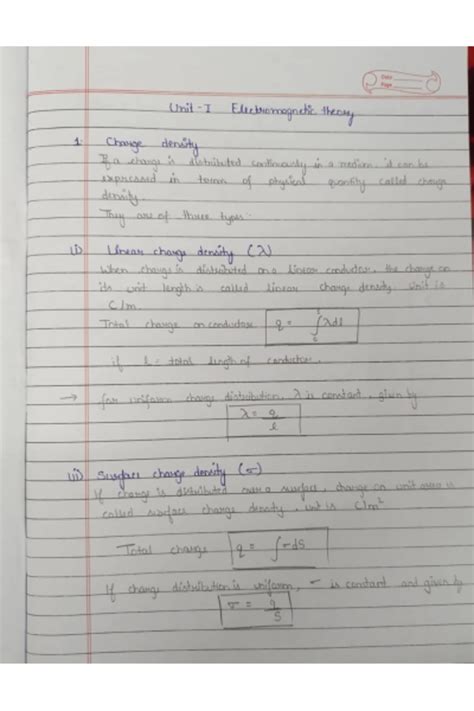 Date
Page
Unit - I Electromagnetic theory
1. Charge density
If a charge is distributed continuously in a medium. it can be
expressed in terms of physical quantity called charge
density.
They are of three types.
(i) Linear charge density (λ)
When charge is distributed on a linear conductor, the charge on
its unit length is called linear charge density. Unit is
C/m.
Total charge on conductor q = ∫λdl
if l = total length of conductor.
→ for uniform charge distribution, λ is constant, given by
λ = q/l
ii) Surface charge density (σ)
If charge is distributed over a surface, charge on unit area is
called surface charge density, unit is C/m²
Total charge q = ∫σds
If charge distribution is uniform, σ is constant and given by
σ = q/S